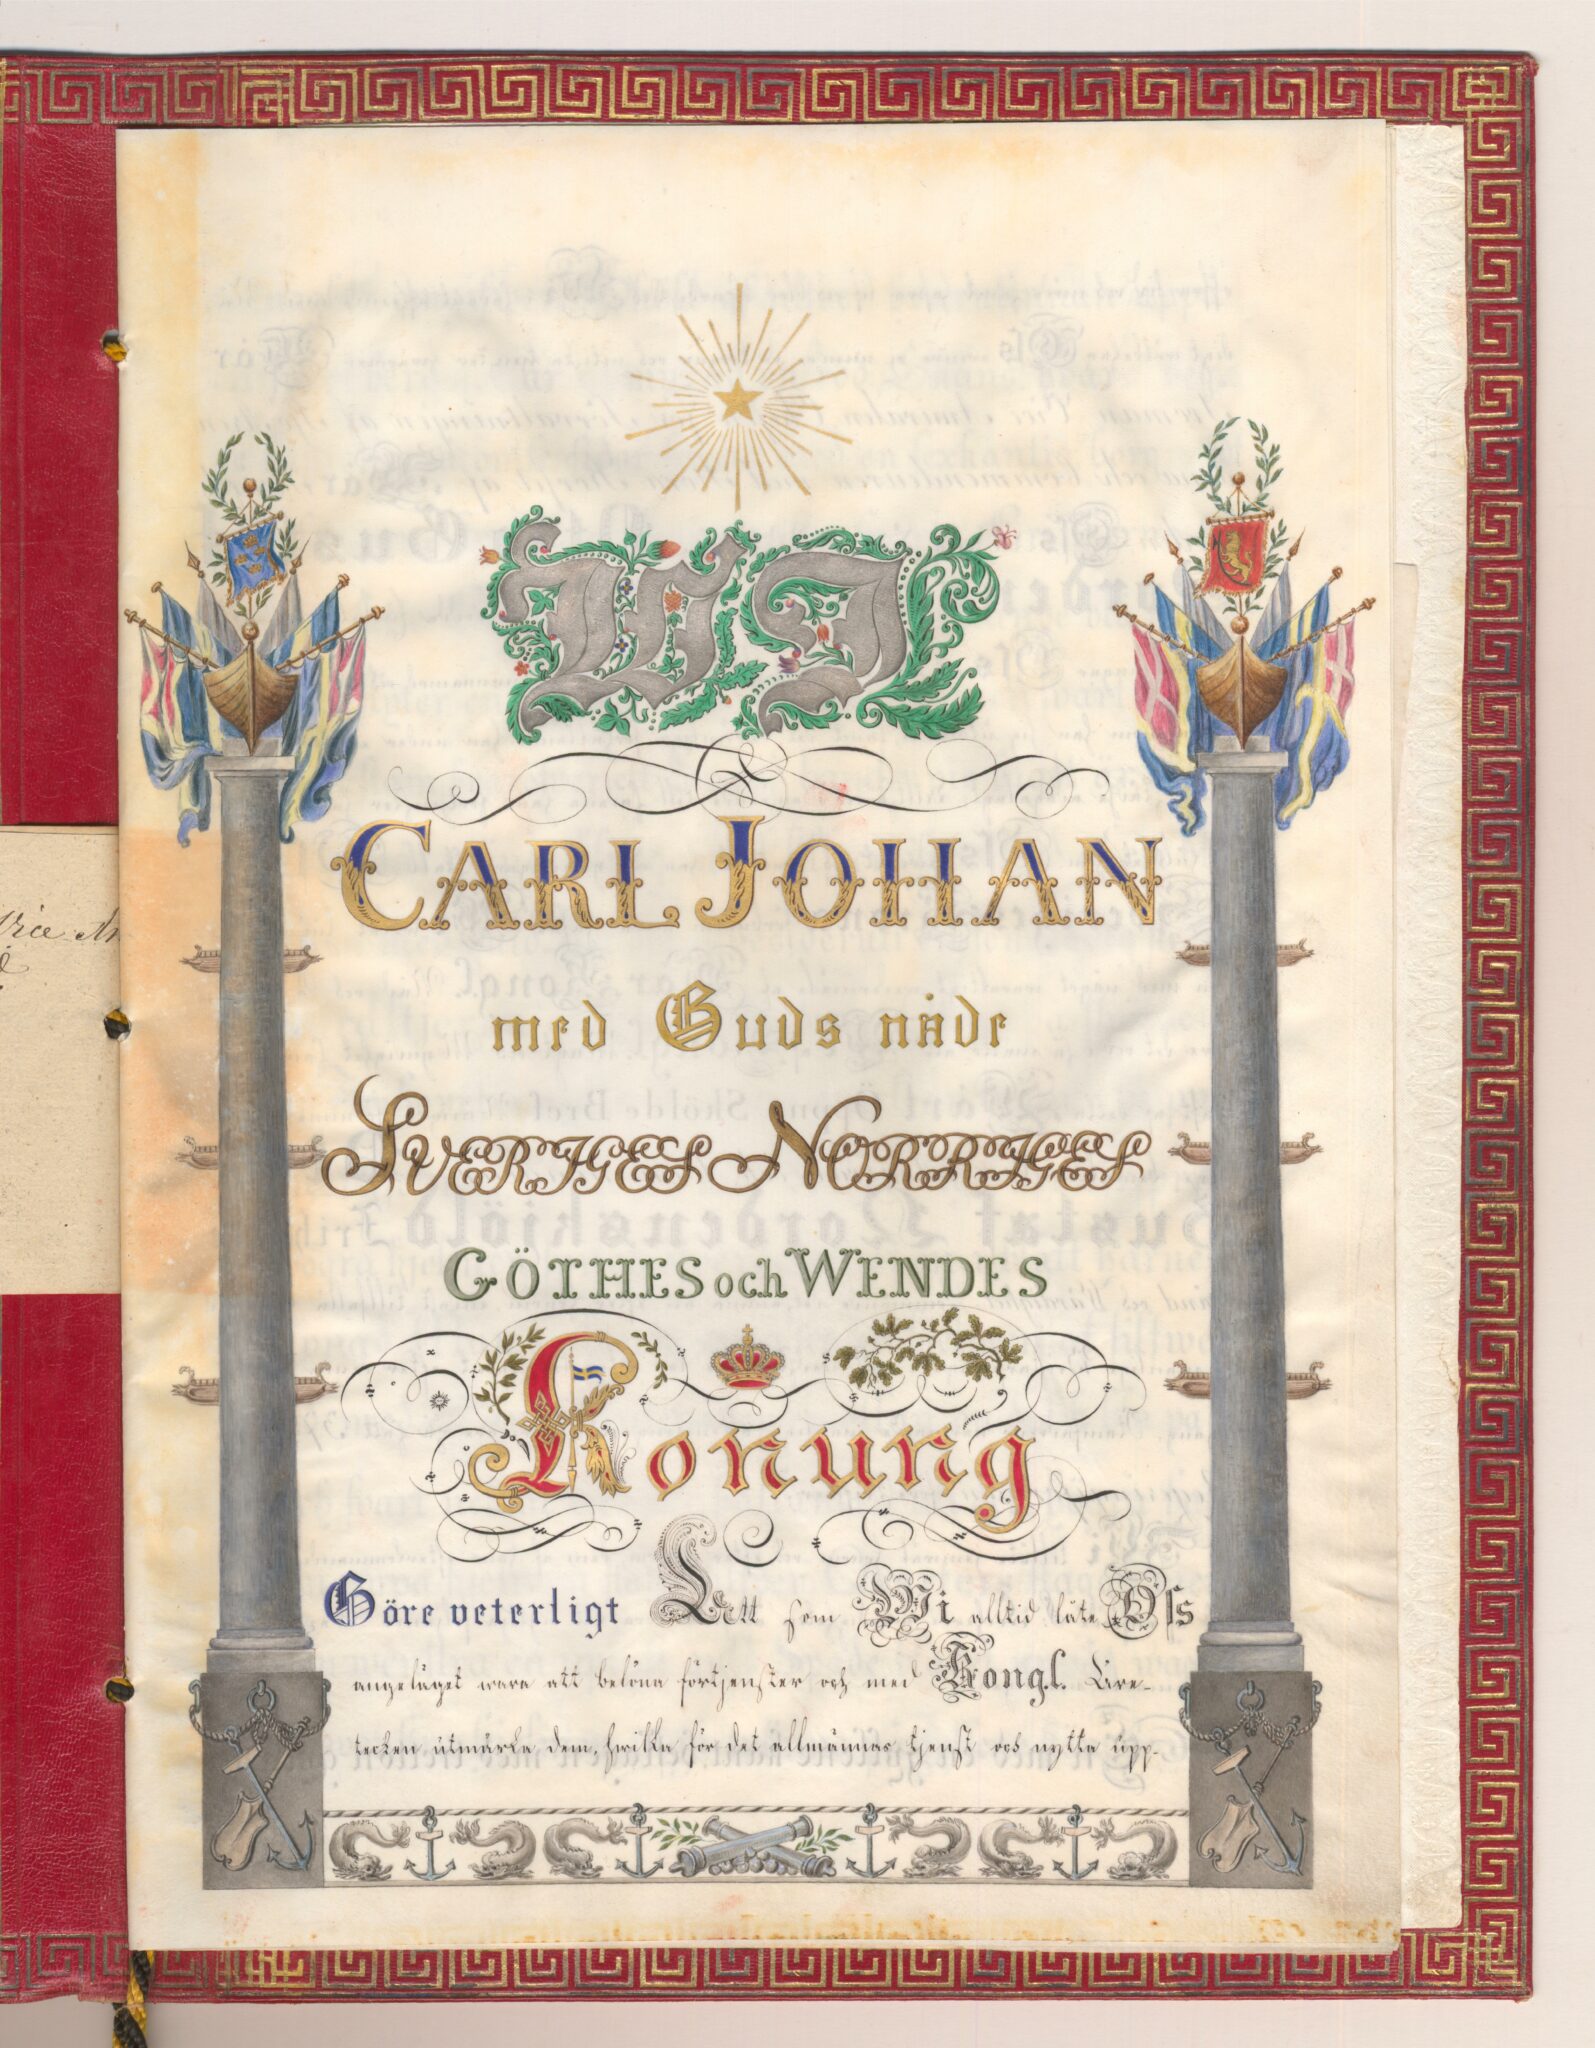 Wi
CARL JOHAN
med Guds nåde
SVERIGES NORRIGES
GÖTHES och WENDES
Konung
Göre veterligt Att som Wi alltid låte Oss
angeläget wara att belöna förtjenster och med Kongl. Äre-
tecken utmärka dem, hwilka för det allmännas tjenst och nytta upp-
Vice